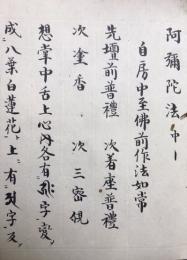 阿彌陀法
自房中至佛前作法如常
先壇前普禮 次着座普禮
次塗香 次三密観
想掌中舌上心内各有 字變
成八葉白蓮花上有 字